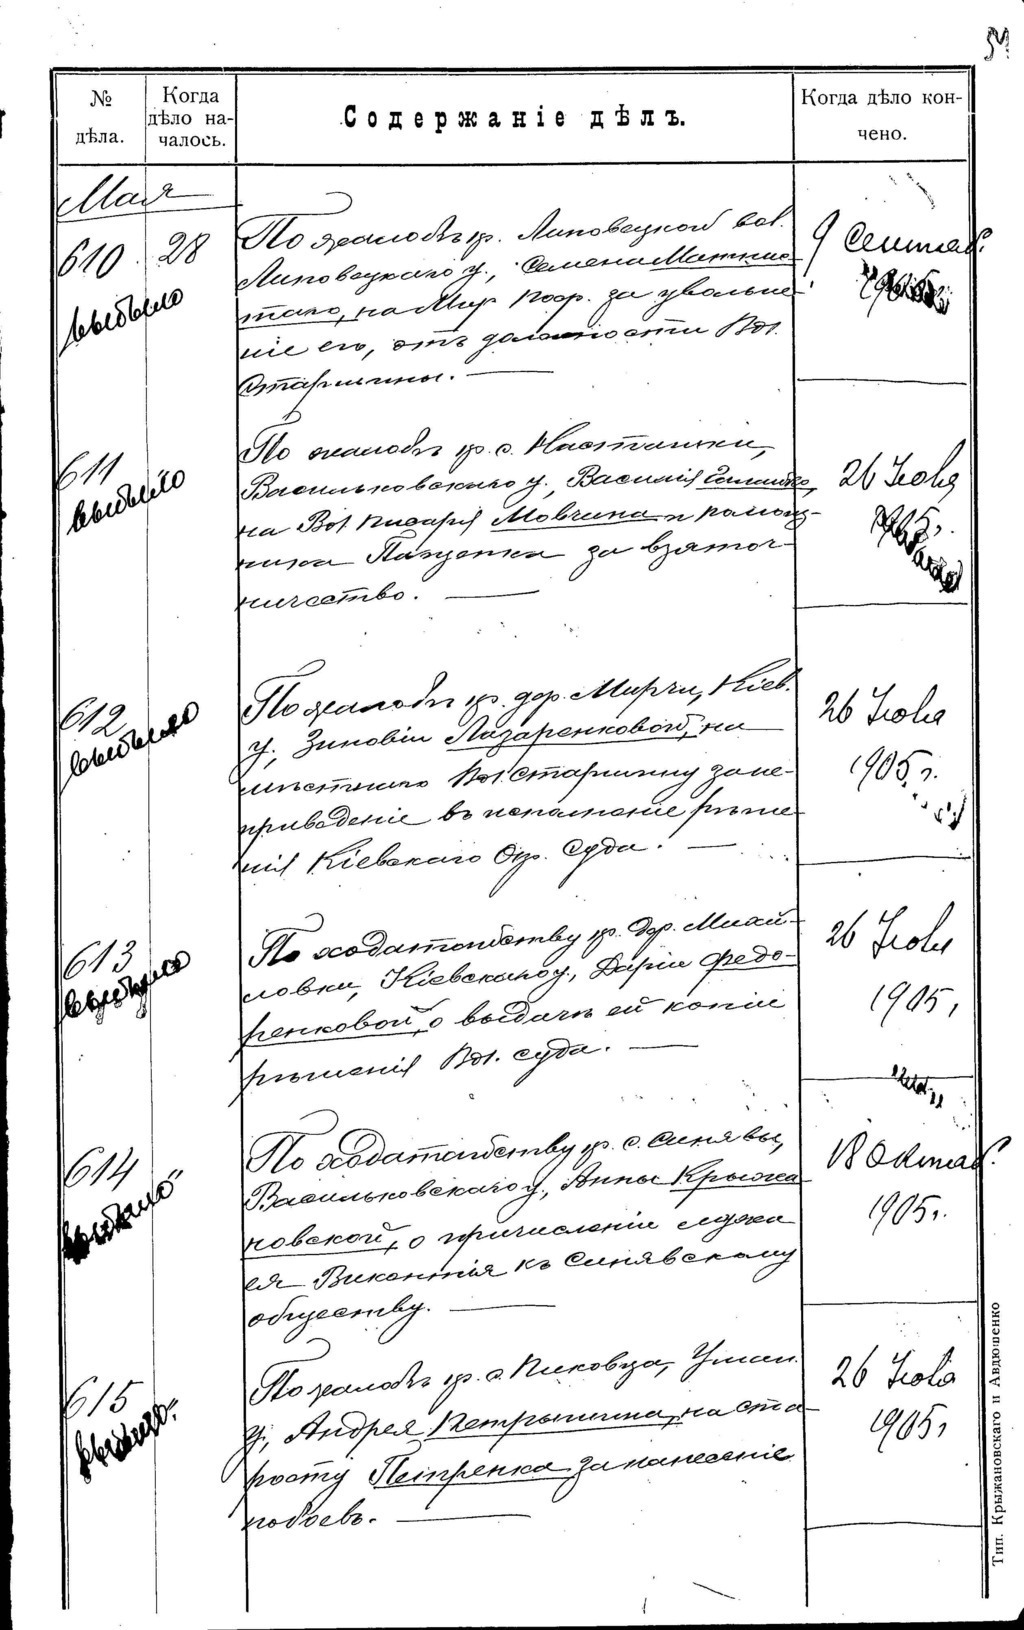 № дѣла.
Когда дѣло на-
чалось.
Содержаніе дѣлъ.
Когда дѣло кон-
чено.
Мая
610 28
выбыло
По жалобѣ кр. Липовецкой вол.
Липовецкаго у., Семена
на Мир. Поср. за увольне-
ніе его, отъ должности Вол.
Старшины. —
9 Сентяб.
611
выбыло
По жалобѣ кр. с. Насташки,
Васильковскаго у., Василія
на Вол. писаря Мовчана и
за взяточ-
ничество. —
26 Іюля
1905 г.
612
выбыло
По жалобѣ кр. дер. Мирчи, Кіев.
у., Зиновіи Лазаренковой, на
мѣстнаго Вол. старшину за не-
приведеніе въ исполненіе рѣше-
нія Кіевскаго Окр. Суда. —
26 Іюля
1905 г.
613
выбыло
По ходатайству кр. дер. Михай-
ловки, Кіевскаго у., Даріи Федо-
ренковой, о выдачѣ ей копіи
рѣшенія Вол. суда. —
26 Іюля
1905,
614
выбыло
По ходатайству кр. с. Синявы,
Васильковскаго у., Анны Крыжа
новской, о причисленіи мужа
ея Викентія къ Синявскому
обществу. —
18 Октяб.
1905г.
615
выбыло
По жалобѣ кр. с. Пиковца, Уман.
у., Андрея на ста-
росту Петренка за нанесеніе
побоевъ. —
26 Іюля
1905г
Тип. Крыжановскаго и Авдюшенко